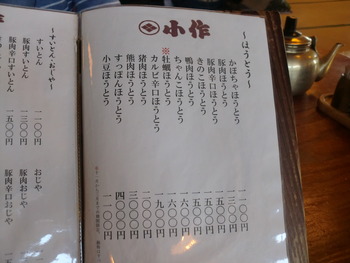 小作
〜ほうとう〜
かぼちゃほうとう 一一〇〇円
豚肉ほうとう 一三〇〇円
豚肉辛口ほうとう 一五〇〇円
きのこほうとう 一五〇〇円
鴨肉ほうとう 一五〇〇円
ちゃんこほうとう 一六〇〇円
※牡蠣ほうとう 一六〇〇円
カルビ辛口ほうとう 一九〇〇円
猪肉ほうとう 二〇〇〇円
熊肉ほうとう 三〇〇〇円
すっぽんほうとう 四〇〇〇円
小豆ほうとう 一一〇〇円
〜すいとん・おじや〜
すいとん 一一〇〇円
豚肉すいとん 一三〇〇円
豚肉辛口すいとん 一五〇〇円
おじや
豚肉おじや
豚肉辛口おじや